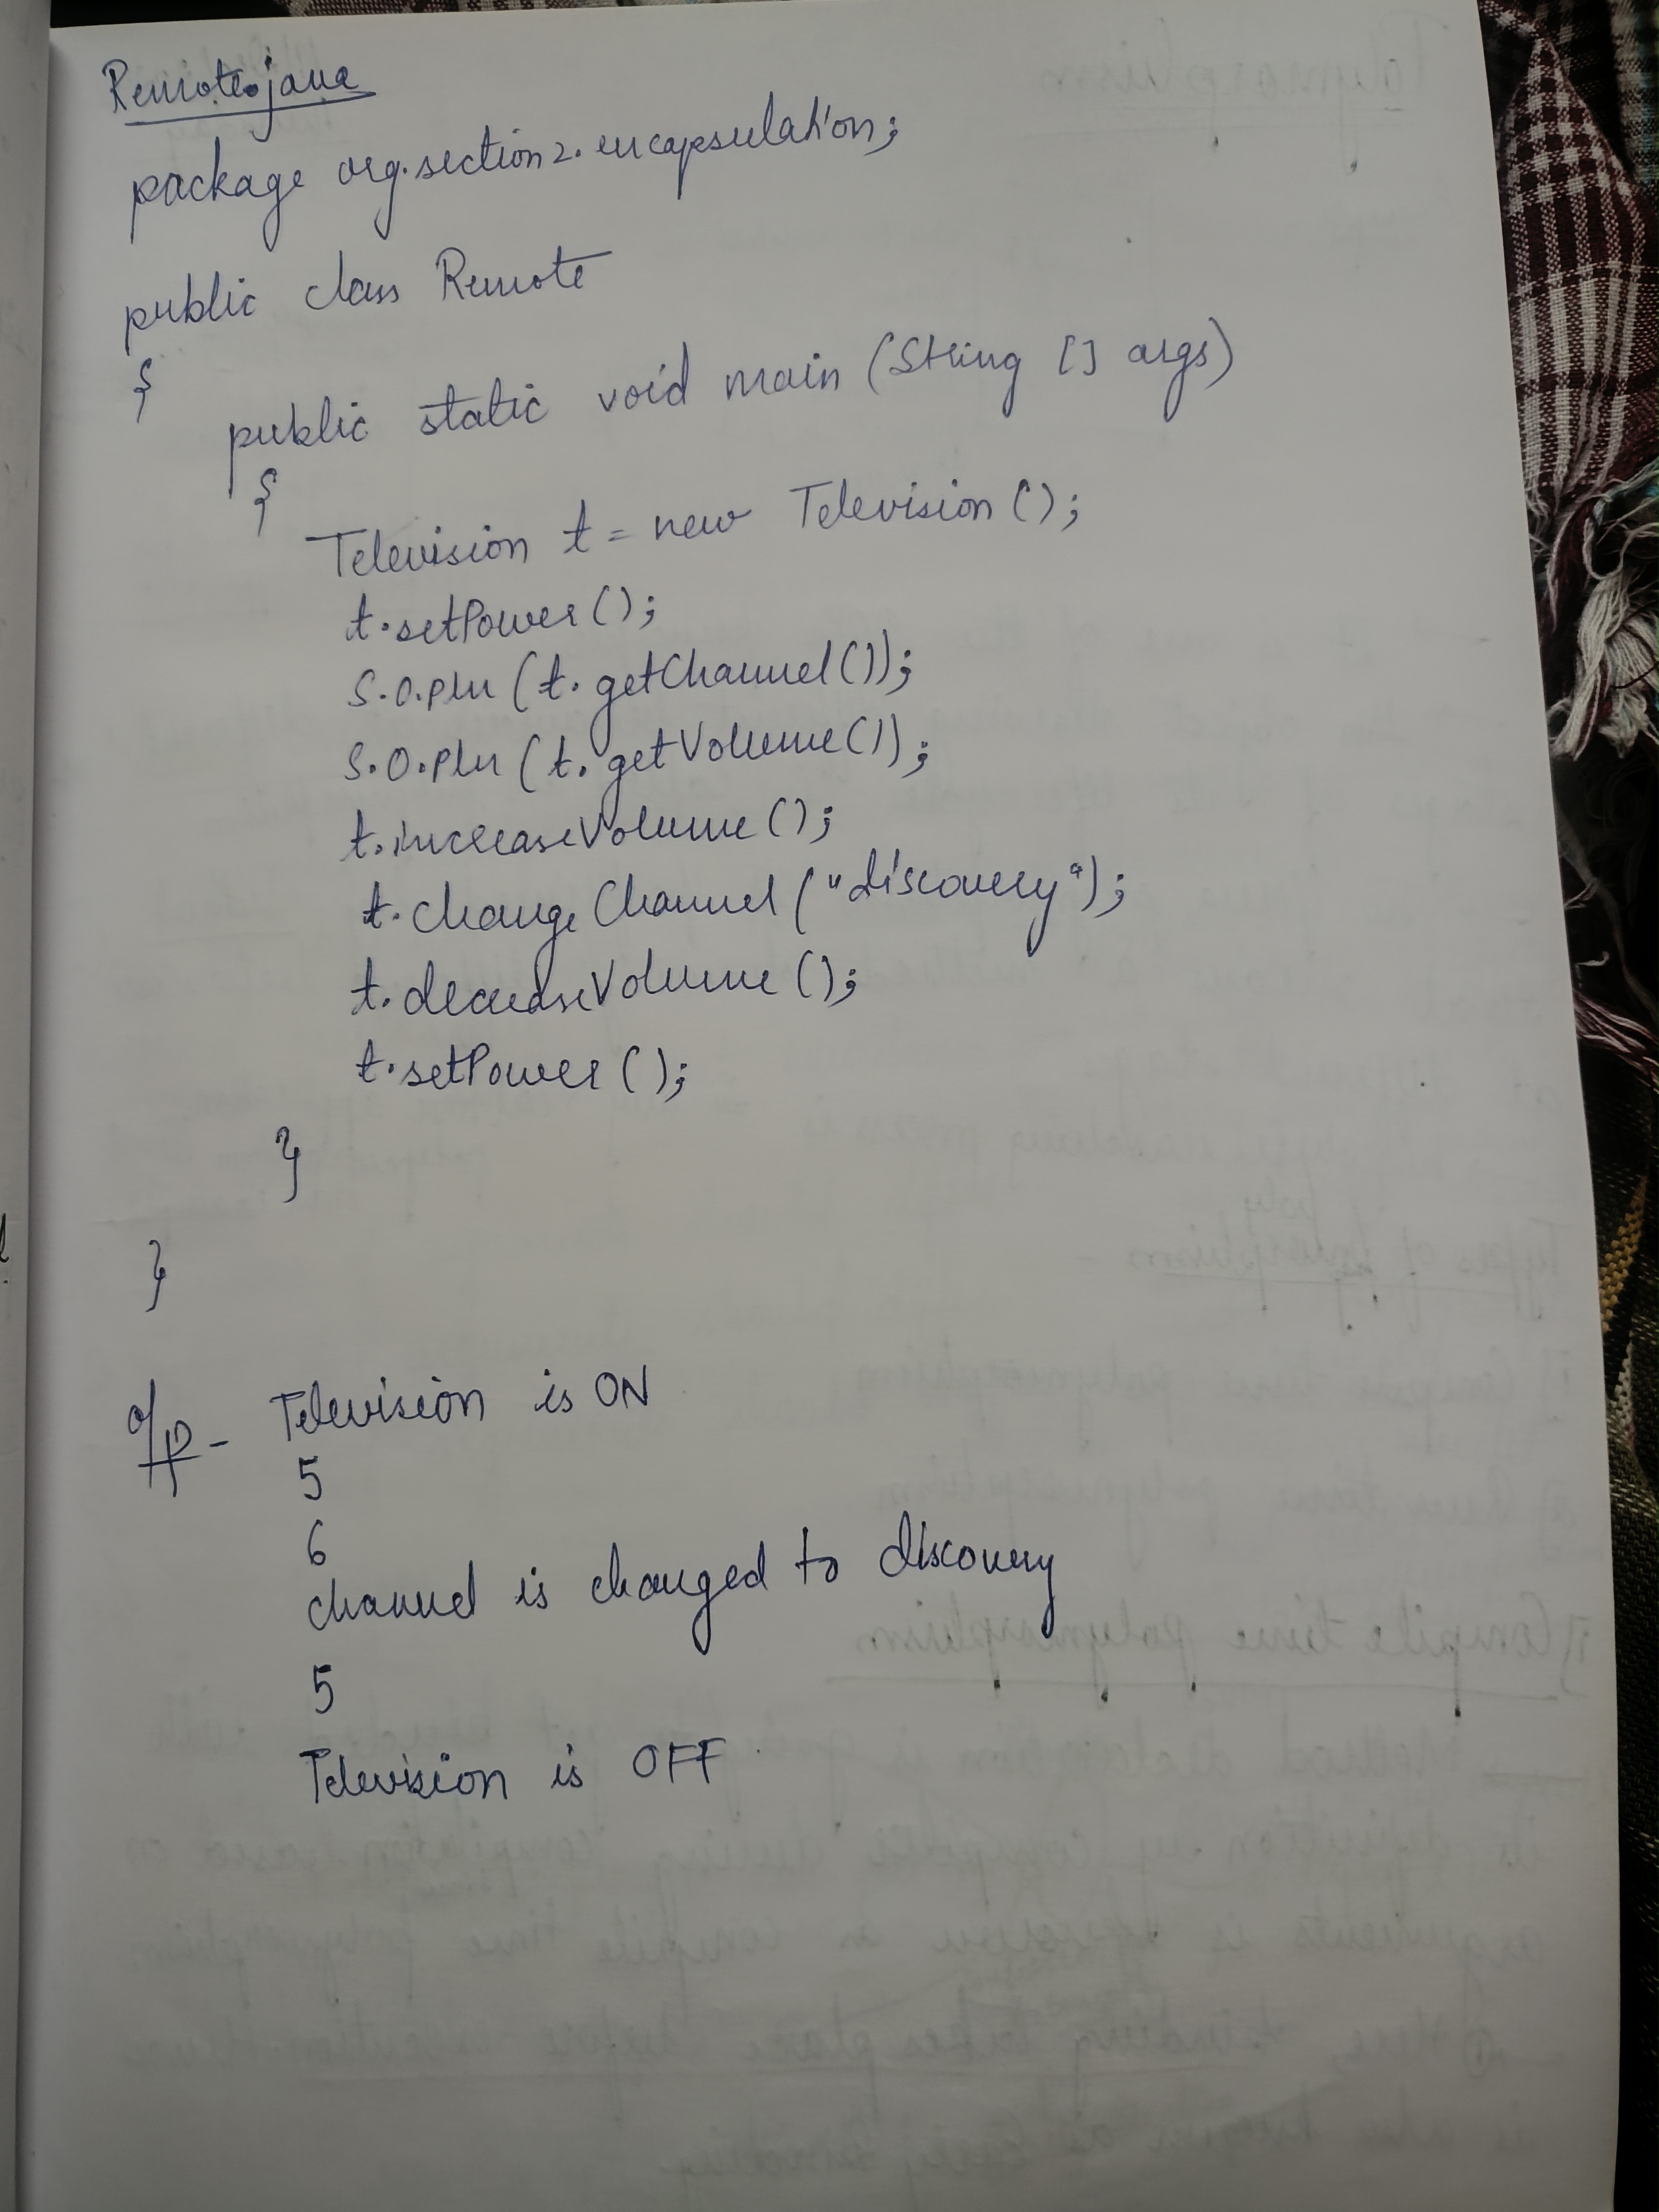 Remote.java
package org.section2.encapsulation;
public class Remote
{
public static void main (String [] args)
{
Television t = new Television ();
t.setPower ();
S.O.pln (t.getChannel());
S.O.pln (t.getVolume());
t.increaseVolume ();
t.changeChannel ("discovery");
t.decreaseVolume ();
t.setPower ();
}
}
o/p - Television is ON
5
6
channel is changed to discovery
5
Television is OFF